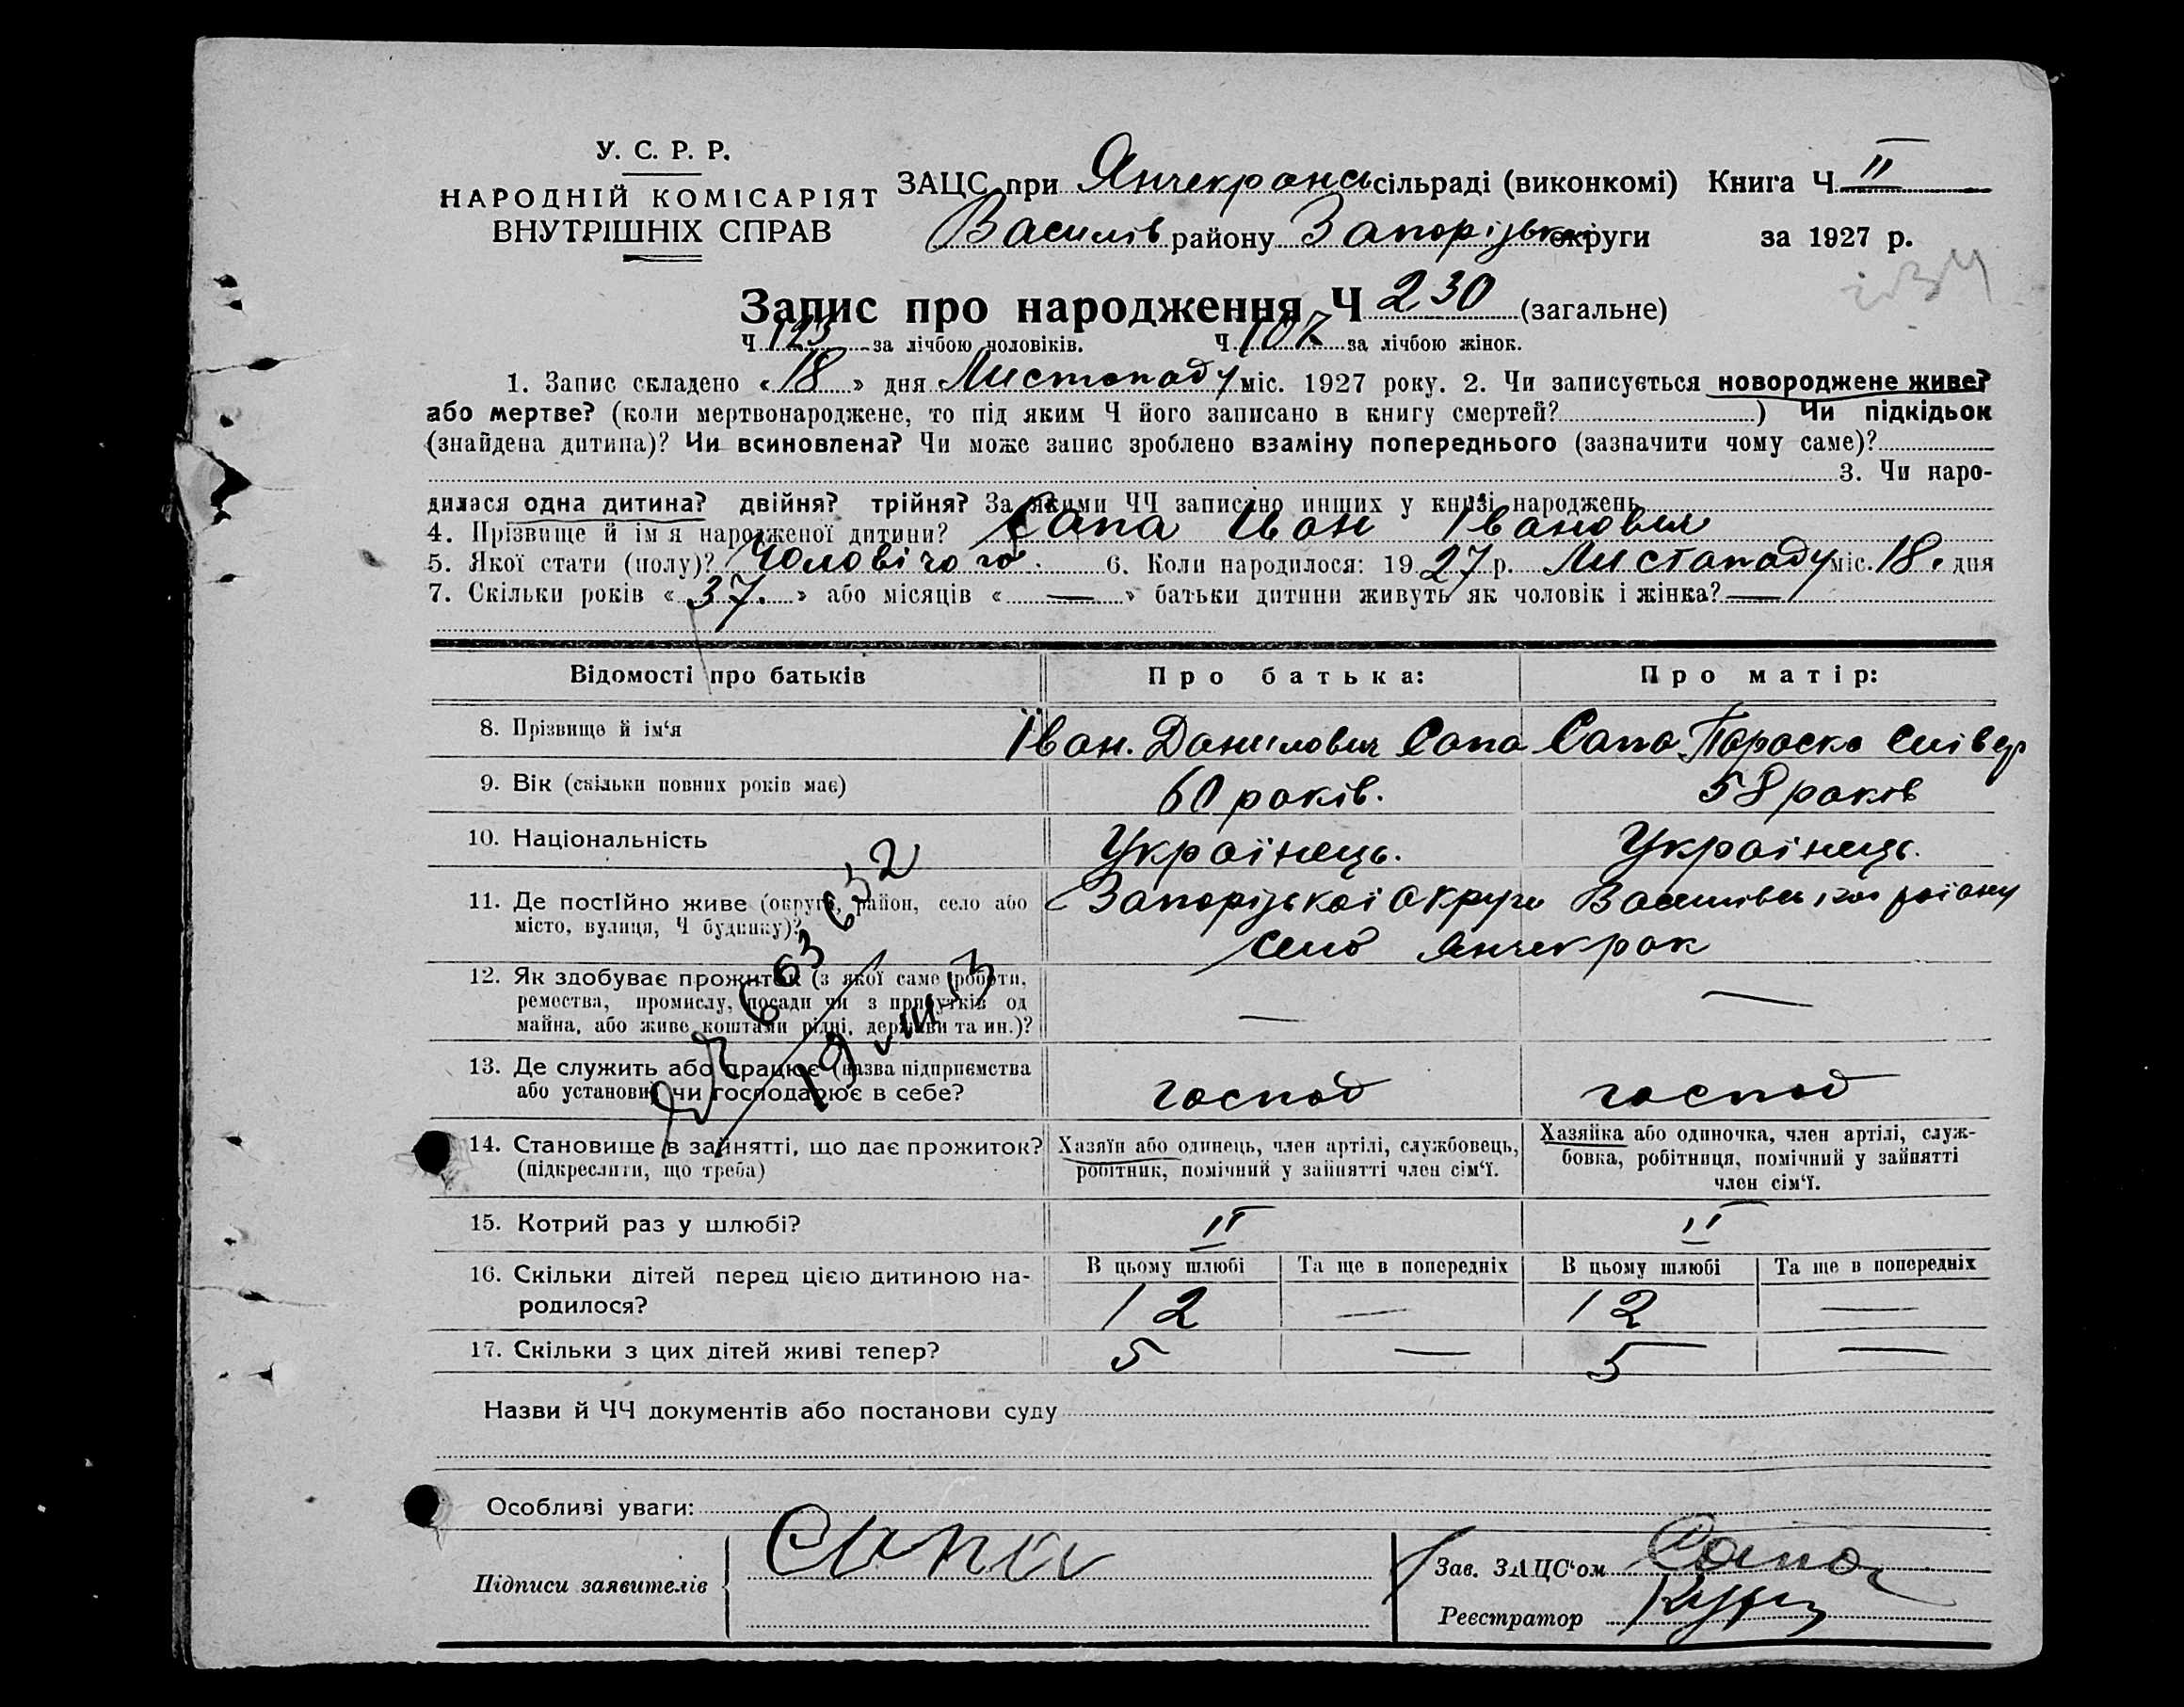 У. С. Р. Р.
НАРОДНІЙ КОМІСАРІЯТ
ВНУТРІШНІХ СПРАВ
ЗАЦС при Янчекрансь сільраді (виконкомі) Книга Ч II
Василів району Запорізької округи за 1927 р.
Запис про народження Ч 230 (загальне)
Ч 123 за лічбою чоловіків. Ч 107 за лічбою жінок.
1. Запис складено « 18 » дня Листопаду міс. 1927 року. 2. Чи записується новороджене живе?
або мертве? (коли мертвонароджене, то під яким Ч його записано в книгу смертей? ) Чи підкідьок
(знайдена дитина)? Чи всиновлена? Чи може запис зроблено взаміну попереднього (зазначити чому саме)?
3. Чи наро-
дилася одна дитина? двійня? трійня? За якими ЧЧ записано инших у книзі народжень
4. Прізвище й ім я народженої дитини? Сапа Іван Іванович
5. Якої стати (полу)? Чоловічого. 6. Коли народилося: 19 27 р. Листопаду міс. 18. дня
7. Скільки років « 37. » або місяців « — » батьки дитини живуть як чоловік і жінка? —
Відомості про батьків Про батька: Про матір:
8. Прізвище й ім‘я Іван. Данилович Сапа Сапа Параска
9. Вік (скільки повних років має) 60 років. 58 років
10. Національність Українець. Українець.
11. Де постійно живе (округа, район, село або
місто, вулиця, Ч будинку)?
Запорізькоі Округи Василівської району
село Янчекрак
12. Як здобуває прожиток (з якої саме роботи,
ремества, промислу, посади чи з прибутків од
майна, або живе коштами рідні, держави та ин.)? — —
13. Де служить або працює (назва підприємства
або установи) чи господарює в себе? господ господ
14. Становище в зайнятті, що дає прожиток?
(підкреслити, що треба)
Хазяїн або одинець, член артілі, службовець,
робітник, помічний у зайнятті член сім‘ї.
Хазяйка або одиночка, член артілі, служ-
бовка, робітниця, помічний у зайнятті
член сім‘ї.
15. Котрий раз у шлюбі? II II
16. Скільки дітей перед цією дитиною на-
родилося?
В цьому шлюбі Та ще в попередніх В цьому шлюбі Та ще в попередніх
12 — 12 —
17. Скільки з цих дітей живі тепер? 5 — 5 —
Назви й ЧЧ документів або постанови суду
Особливі уваги:
Підписи заявителів Сапа
Зав. ЗАЦС‘ом Сапа
Реєстратор